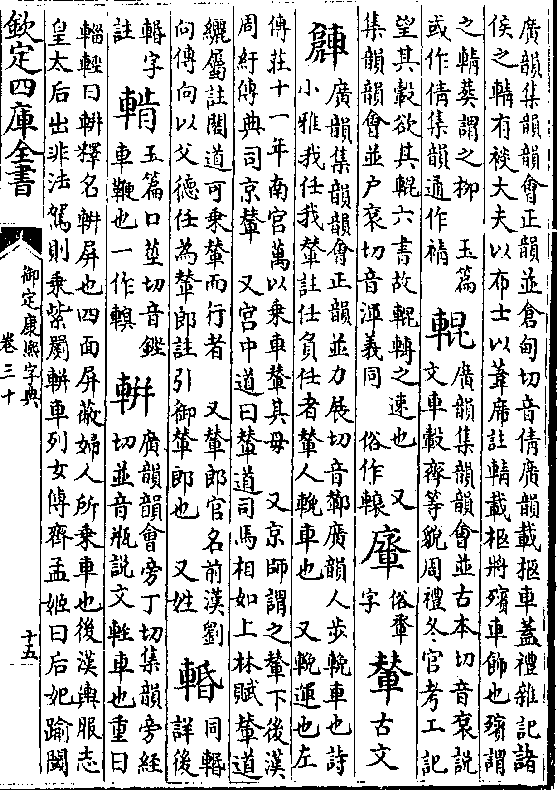 廣韻集韻韻會正韻並倉甸切音倩廣韻載柩車蓋禮雜記諸
侯之輤有裧大夫以布士以葦席註輤載柩將殯車飾也殯謂
之輤葬謂之柳 玉篇
或作倩集韻通作綪 輥 廣韻集韻韻會並古本切音衮說
文車轂齊等貌周禮冬官考工記
望其轂欲其輥六書故輥轉之速也 又
集韻韻會並戶衮切音渾義同 俗作轅 𨋎 俗輦
字 輦 古文
𨋢 廣韻集韻韻會正韻並力展切音鄻廣韻人步輓車也詩
小雅我任我輦註任負任者輦人輓車也 又輓運也左
傳莊十一年南宮萬以乘車輦其母 又京師謂之輦下後漢
周紆傳典司京輦 又宮中道曰輦道司馬相如上林賦輦道
纚屬註閣道可乘輦而行者 又輦郎官名前漢劉
向傳向以父德任為輦郎註引御輦郎也 又姓 𨌲 同輼
詳後
輼字 䡰 玉篇口莖切音鏗
註 車鞭也一作䡩 軿 廣韻韻會旁丁切集韻旁經
切並音瓶說文輕車也重曰
輜輕曰軿釋名軿屏也四面屏蔽婦人所乘車也後漢輿服志
皇太后出非法駕則乘紫罽軿車列女傳齊孟姬曰后妃踰閾
欽定四庫全書
御定康熙字典
卷三十
十五